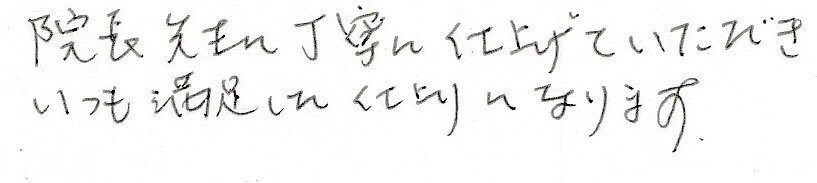 院長先生に丁寧に仕上げていただき
いつも満足した仕上りになります